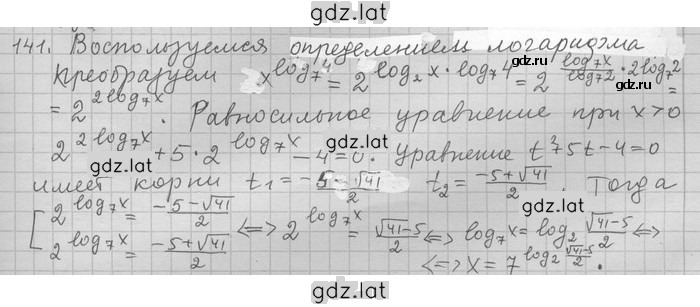 gdz.lat
141. Воспользуемся определением логаридма
преобразуем x^{log_7 4} = 2^{log_2 x · log_7 4} = 2^{\frac{log_7 x}{log_7 2} · 2log_7 2} =
= 2^{2log_7 x}. Равносильное уравнение при x>0
2^{2log_7 x} + 5·2^{log_7 x} - 4 = 0. Уравнение t²+5t-4=0
gdz.lat gdz.lat
имеет корни t_1 = \frac{-5-√41}{2} t_2 = \frac{-5+√41}{2}. Тогда
[ 2^{log_7 x} = \frac{-5-√41}{2}
2^{log_7 x} = \frac{-5+√41}{2} <=> 2^{log_7 x} = \frac{√41-5}{2} <=> log_7 x = log_2 \frac{√41-5}{2} <=>
gdz.lat gdz.lat
<=> x = 7^{log_2 \frac{√41-5}{2}}.
gdz.lat